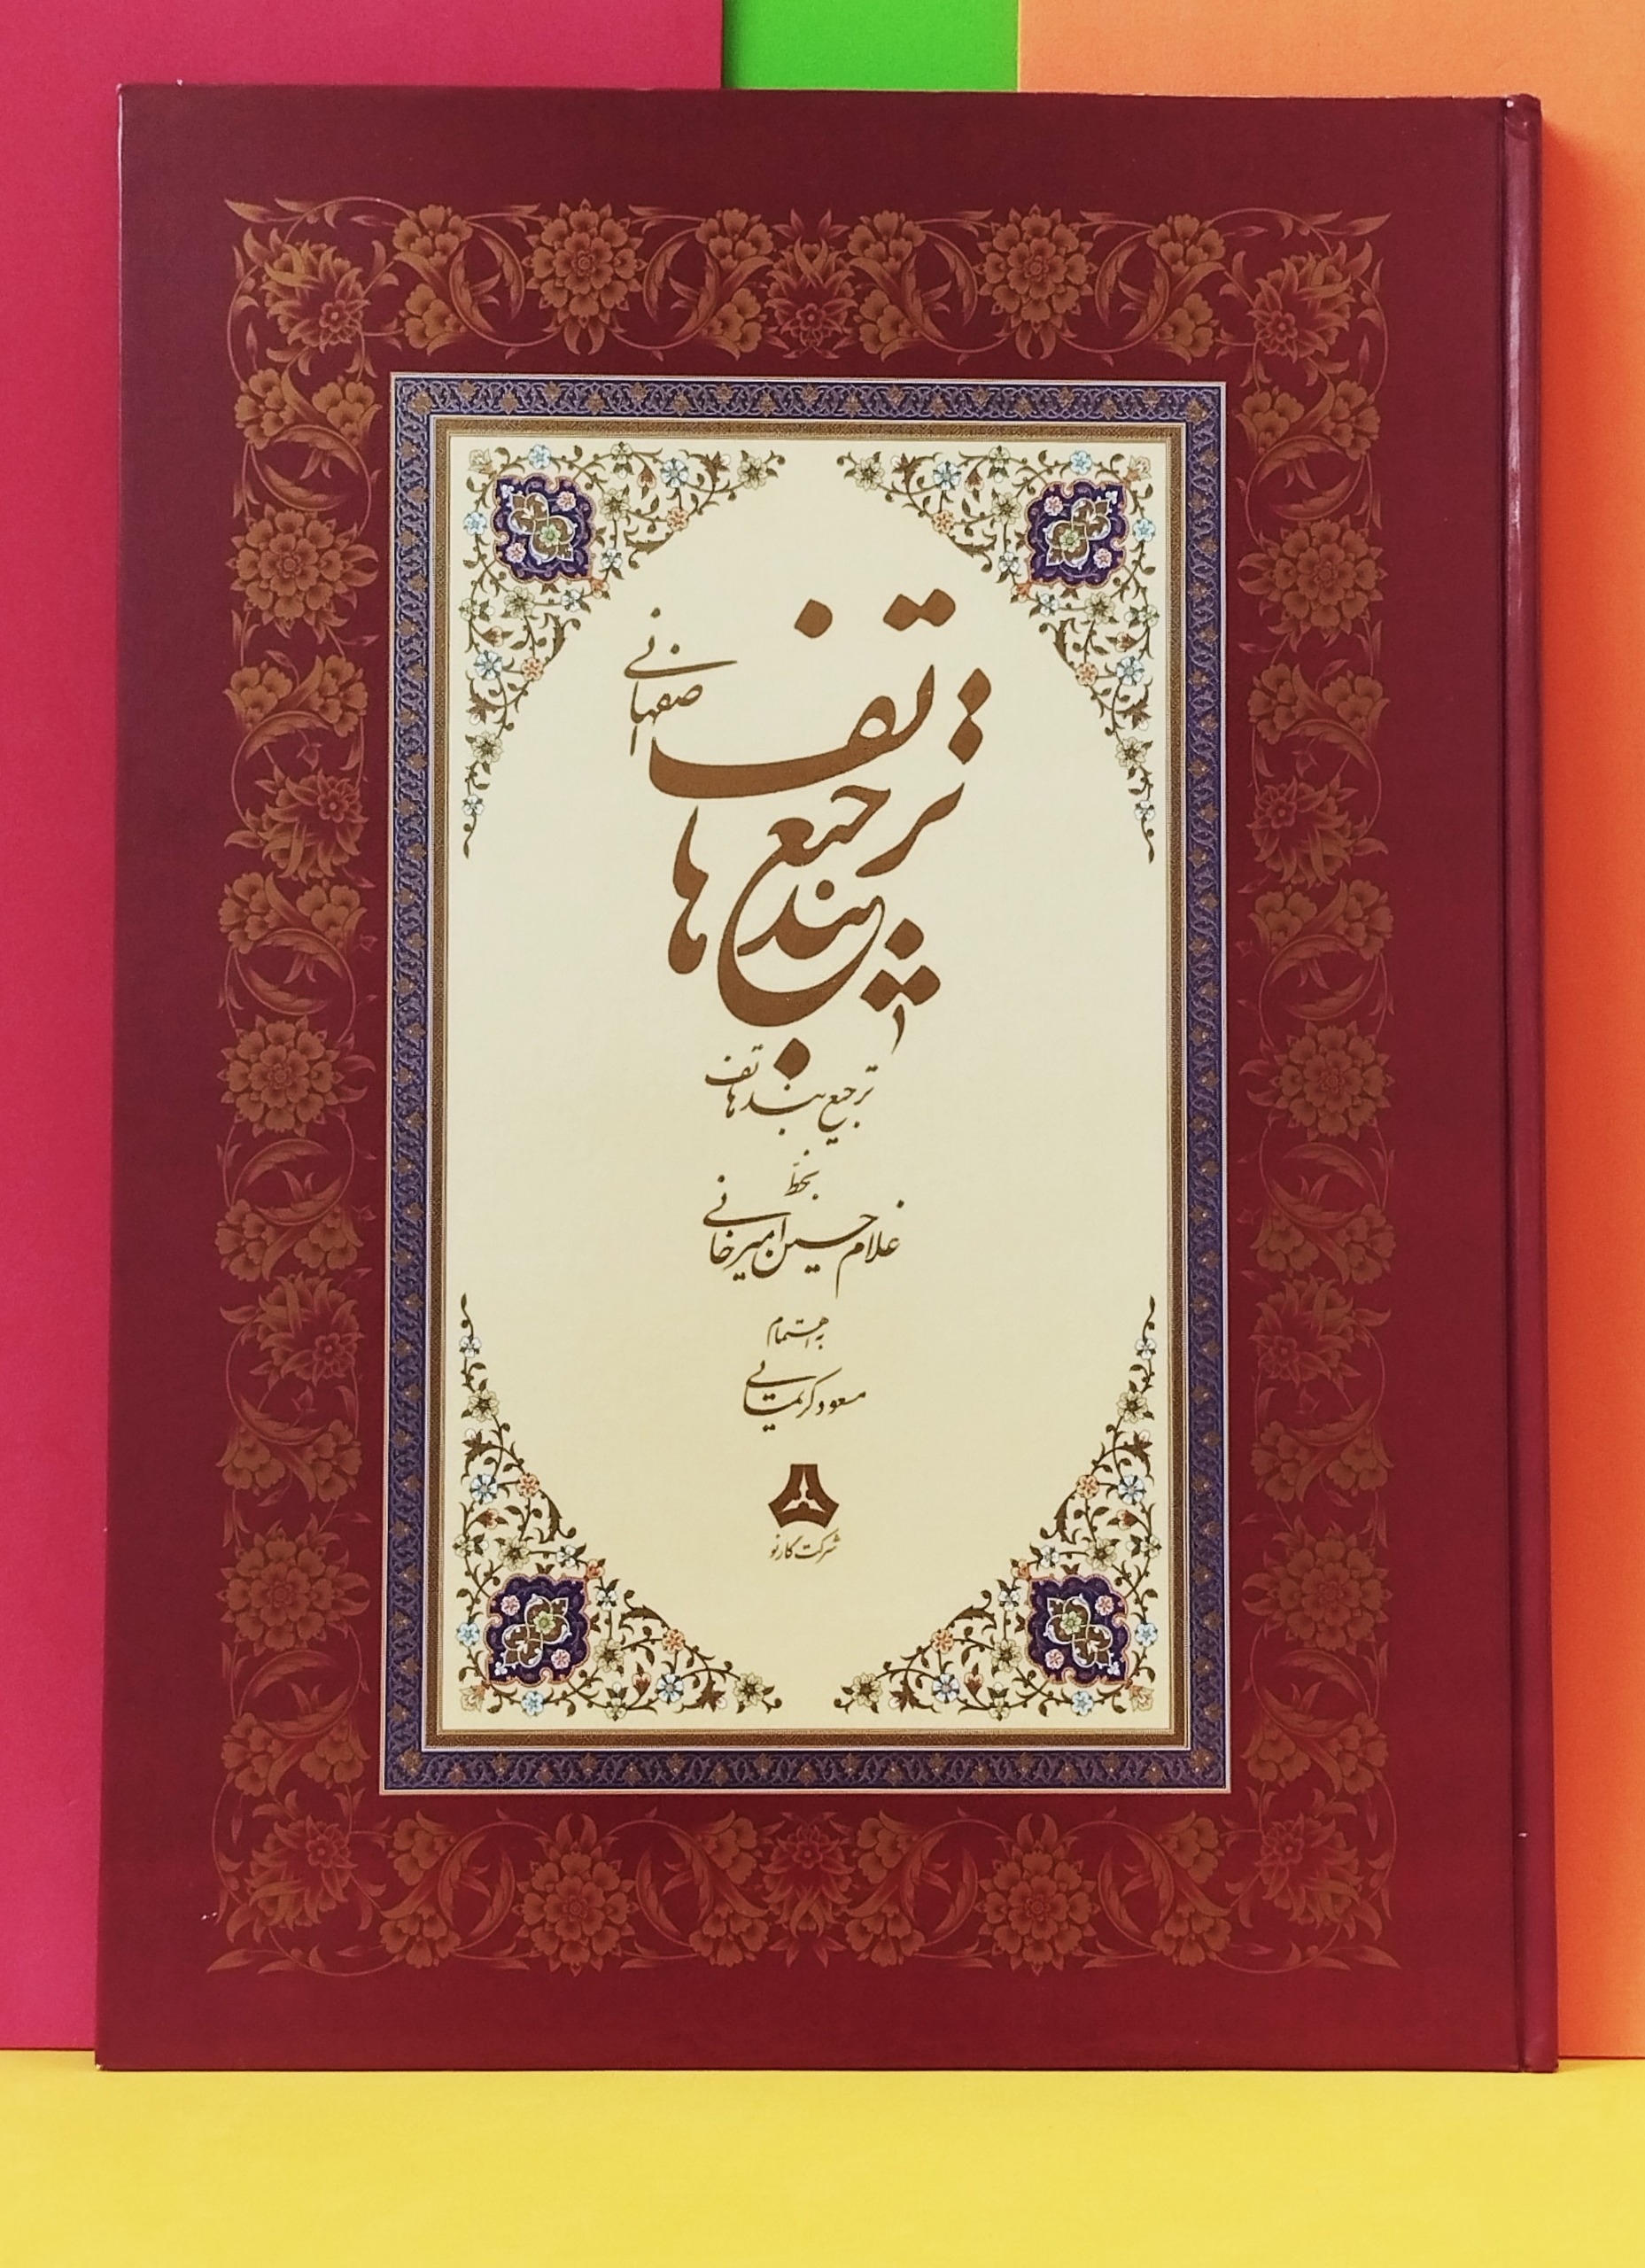 ترجیع بند هاتف اصفهانی
ترجیع بند هاتف
بخط
غلامحسین امیرخانی
به اهتمام
مسعود کریمائی
شرکت گارنو